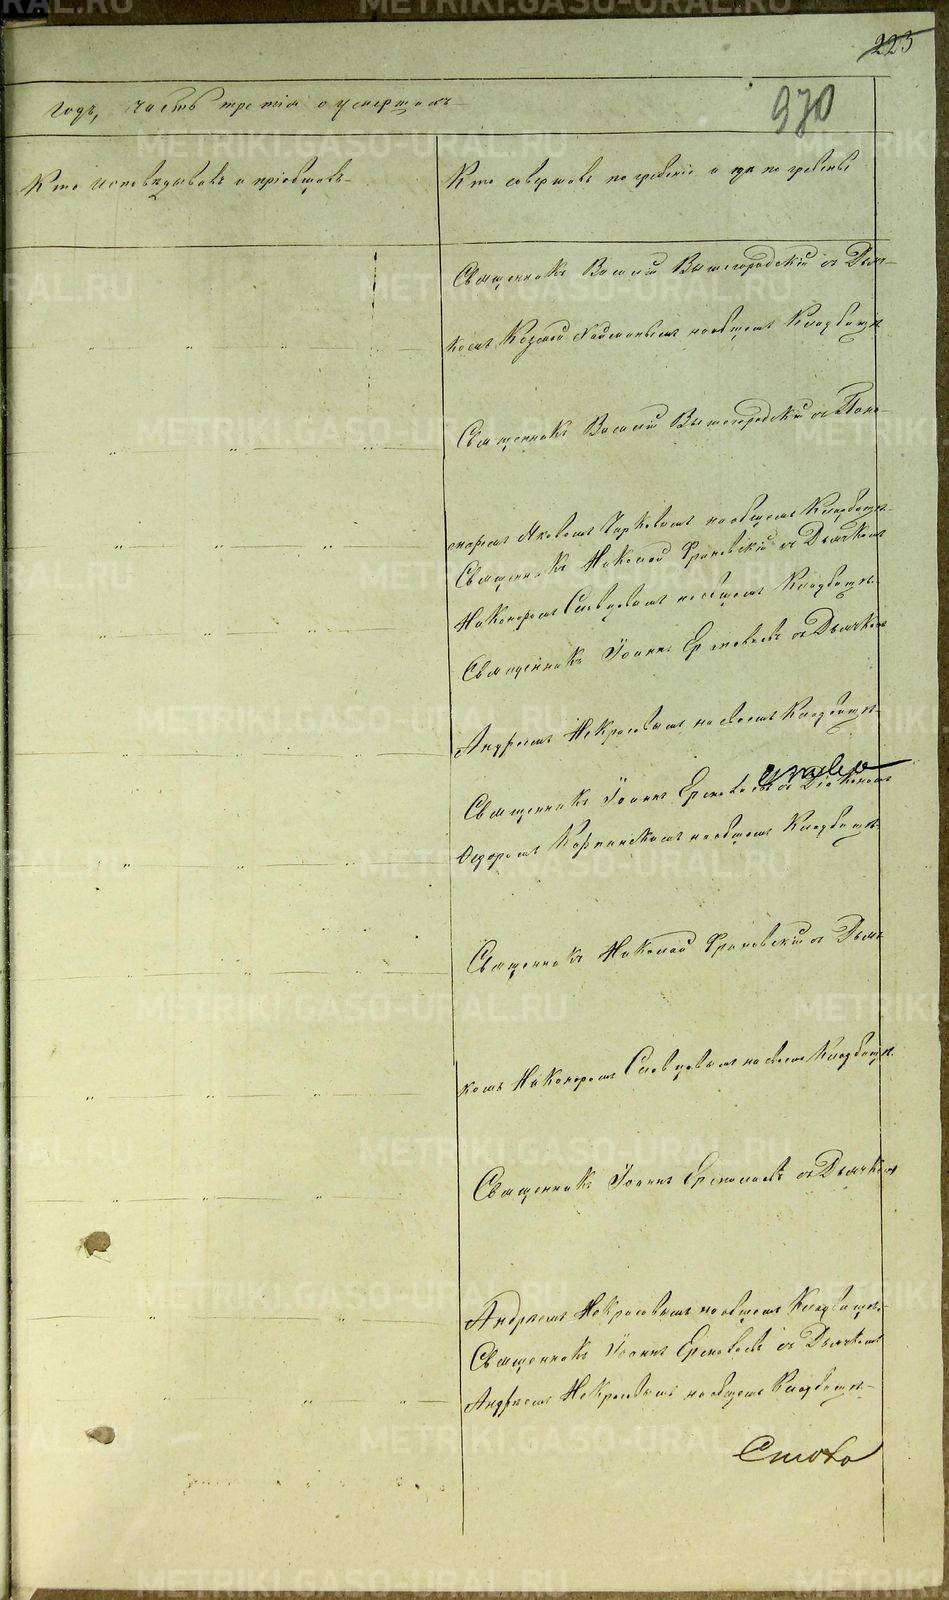 225
970
годъ, часть третія о умершихъ
Кто исповѣдывалъ и пріобщалъ
Кто совершалъ погребеніе и гдѣ погребены
Священникъ Василій Вышегородскій съ Дьяч-
комъ Козмой на общемъ Кладбищѣ
Священникъ Василій Вышегородскій съ Поно-
маремъ Яковомъ на общемъ Кладбищѣ
Священникъ Николай съ Дьячкомъ
Никаноромъ Словцовымъ на общемъ Кладбищѣ
Священникъ Іоаннъ съ Дьячкомъ
Андреемъ Некрасовымъ на общемъ Кладбищѣ
Священникъ Іоаннъ съ Діакономъ
Ѳедоромъ на общемъ Кладбищѣ
Священникъ Николай съ Дьяч-
комъ Никаноромъ Словцовымъ на общемъ Кладбищѣ
Священникъ Іоаннъ съ Дьячкомъ
Андреемъ Некрасовымъ на общемъ Кладбищѣ
Священникъ Іоаннъ съ Дьячкомъ
Андреемъ Некрасовымъ на общемъ Кладбищѣ
METRIKI.GASO-URAL.RU